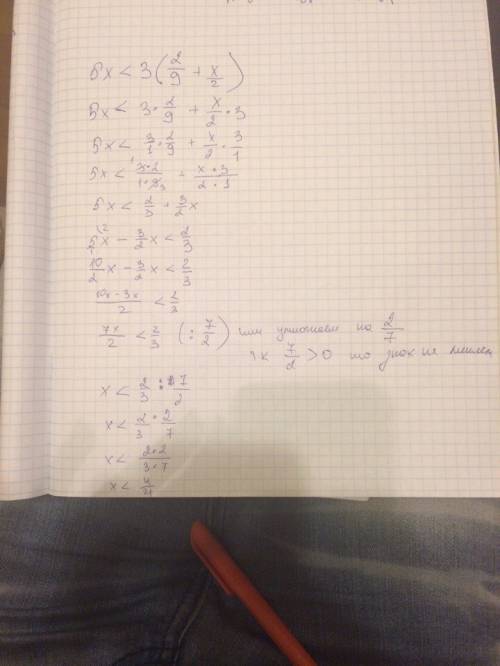 5x < 3(2/9 + x/2)
5x < 3 · 2/9 + x/2 · 3
5x < 3/1 · 2/9 + x/2 · 3/1
5x < 3·2/1·9 + x·3/2·1
5x < 2/3 + 3/2x
5x - 3/2x < 2/3
10/2x - 3/2x < 2/3
10x-3x/2 < 2/3
7x/2 < 2/3 (: 7/2) или умножаем на 2/7
т.к 7/2 > 0 то знак не
x < 2/3 : 7/2
x < 2/3 · 2/7
x < 2·2/3·7
x < 4/21